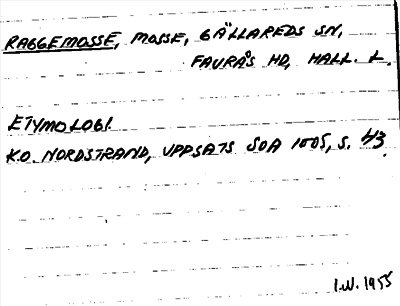 RAGGEMOSSE, MOSSE, GÄLLAREDS SN,
FAURÅS HD, HALL. L.
ETYMOLOGI.
K.O. NORDSTRAND, UPPSATS SOA 1005, S. 43.
I.W. 1955